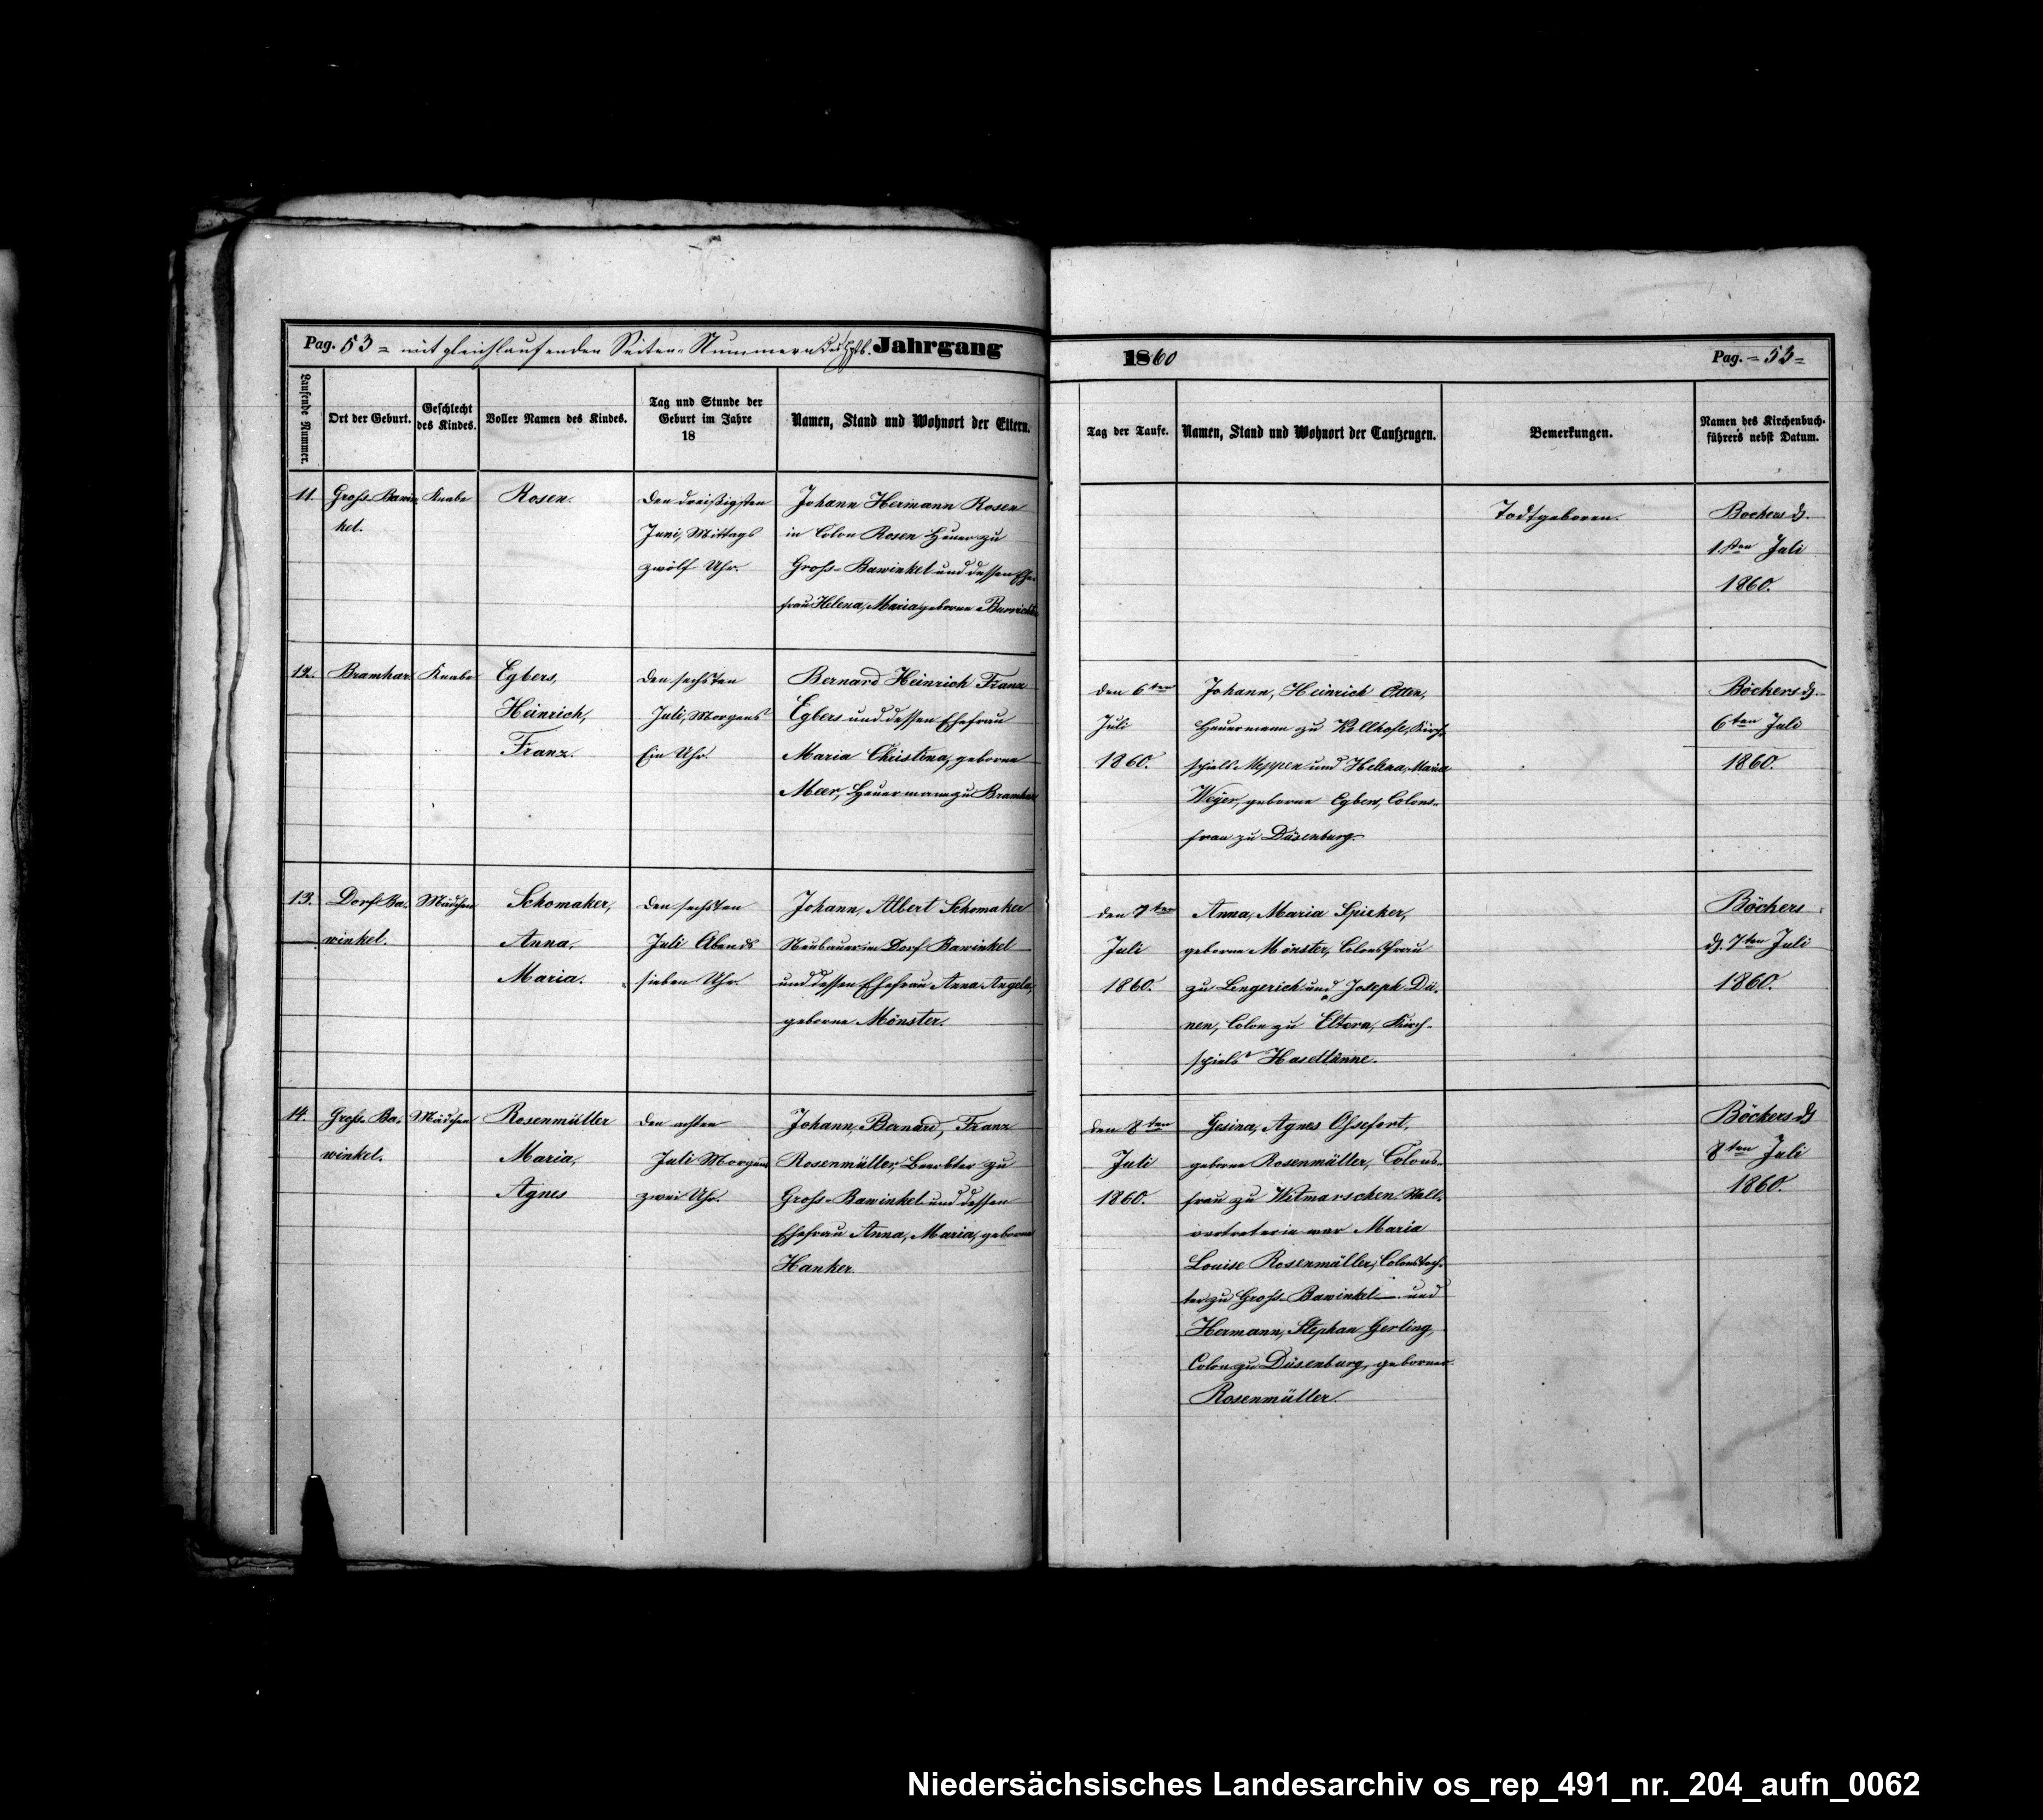 Pag. 53 = mit gleichlaufenden Seiten-Nummern Jahrgang
1860
Pag. = 53 =
Laufende Nummer.
Ort der Geburt.
Geschlecht
des Kindes.
Voller Namen des Kindes.
Tag und Stunde der
Geburt im Jahre
18
Namen, Stand und Wohnort der Eltern.
Tag der Taufe.
Namen, Stand und Wohnort der Taufzeugen.
Bemerkungen.
Namen des Kirchenbuch-
führers nebst Datum.
11.
Groß-Bawin-
kel.
Knabe
Rosen.
Den dreißigsten
Juni, Mittags
zwölf Uhr.
Johann Hermann Rosen
in Colon Rosen Heuer zu
Groß-Bawinkel und dessen Ehe-
frau Helena, Maria, geborne
Todtgeboren.
Böckers d.
1.sten Juli
1860.
12.
Bramhar.
Knabe
Egbers,
Heinrich,
Franz.
den sechsten
Juli, Morgens
Ein Uhr.
Bernard Heinrich Franz
Egbers und dessen Ehefrau
Maria Christina, geborne
Meer, Heuermann zu Bramhar
den 6ten
Juli
1860.
Johann, Heinrich Otten,
Heuermann zu Kirch-
spiels Meppen und Helena, Maria
Weyer, geborne Egbers, Colons-
frau zu Düsenburg.
Böckers d.
6ten Juli
1860.
13.
Dorf Ba-
winkel.
Mädchen
Schomaker,
Anna,
Maria.
den sechsten
Juli Abends
sieben Uhr.
Johann, Albert Schomaker
Neubauer im Dorf Bawinkel
und dessen Ehefrau Anna Angela,
geborne Mönster.
den 7ten
Juli
1860.
Anna, Maria Spieker,
geborne Mönster, Colonsfrau
zu Lengerich und Joseph Dü-
nen, Colon zu Eltern, Kirch-
spiels Haselünne.
Böckers
d. 7ten Juli
1860.
14.
Groß-Ba-
winkel.
Mädchen
Rosenmüller
Maria,
Agnes
den achten
Juli Morgens
zwei Uhr.
Johann, Bernard, Franz
Rosenmüller, Beerbter zu
Groß-Bawinkel und dessen
Ehefrau Anna, Maria, geborne
Hanker.
den 8ten
Juli
1860.
Gesina, Agnes
geborne Rosenmüller, Colons-
frau zu Witmarschen Stell-
vertreterin war Maria
Louise Rosenmüller, Colonstoch-
ter zu Groß-Bawinkel und
Hermann, Stephan Gerling,
Colon zu Düsenburg, geborner
Rosenmüller.
Böckers d.
8ten Juli
1860.
Niedersächsisches Landesarchiv os_rep_491_nr._204_aufn_0062